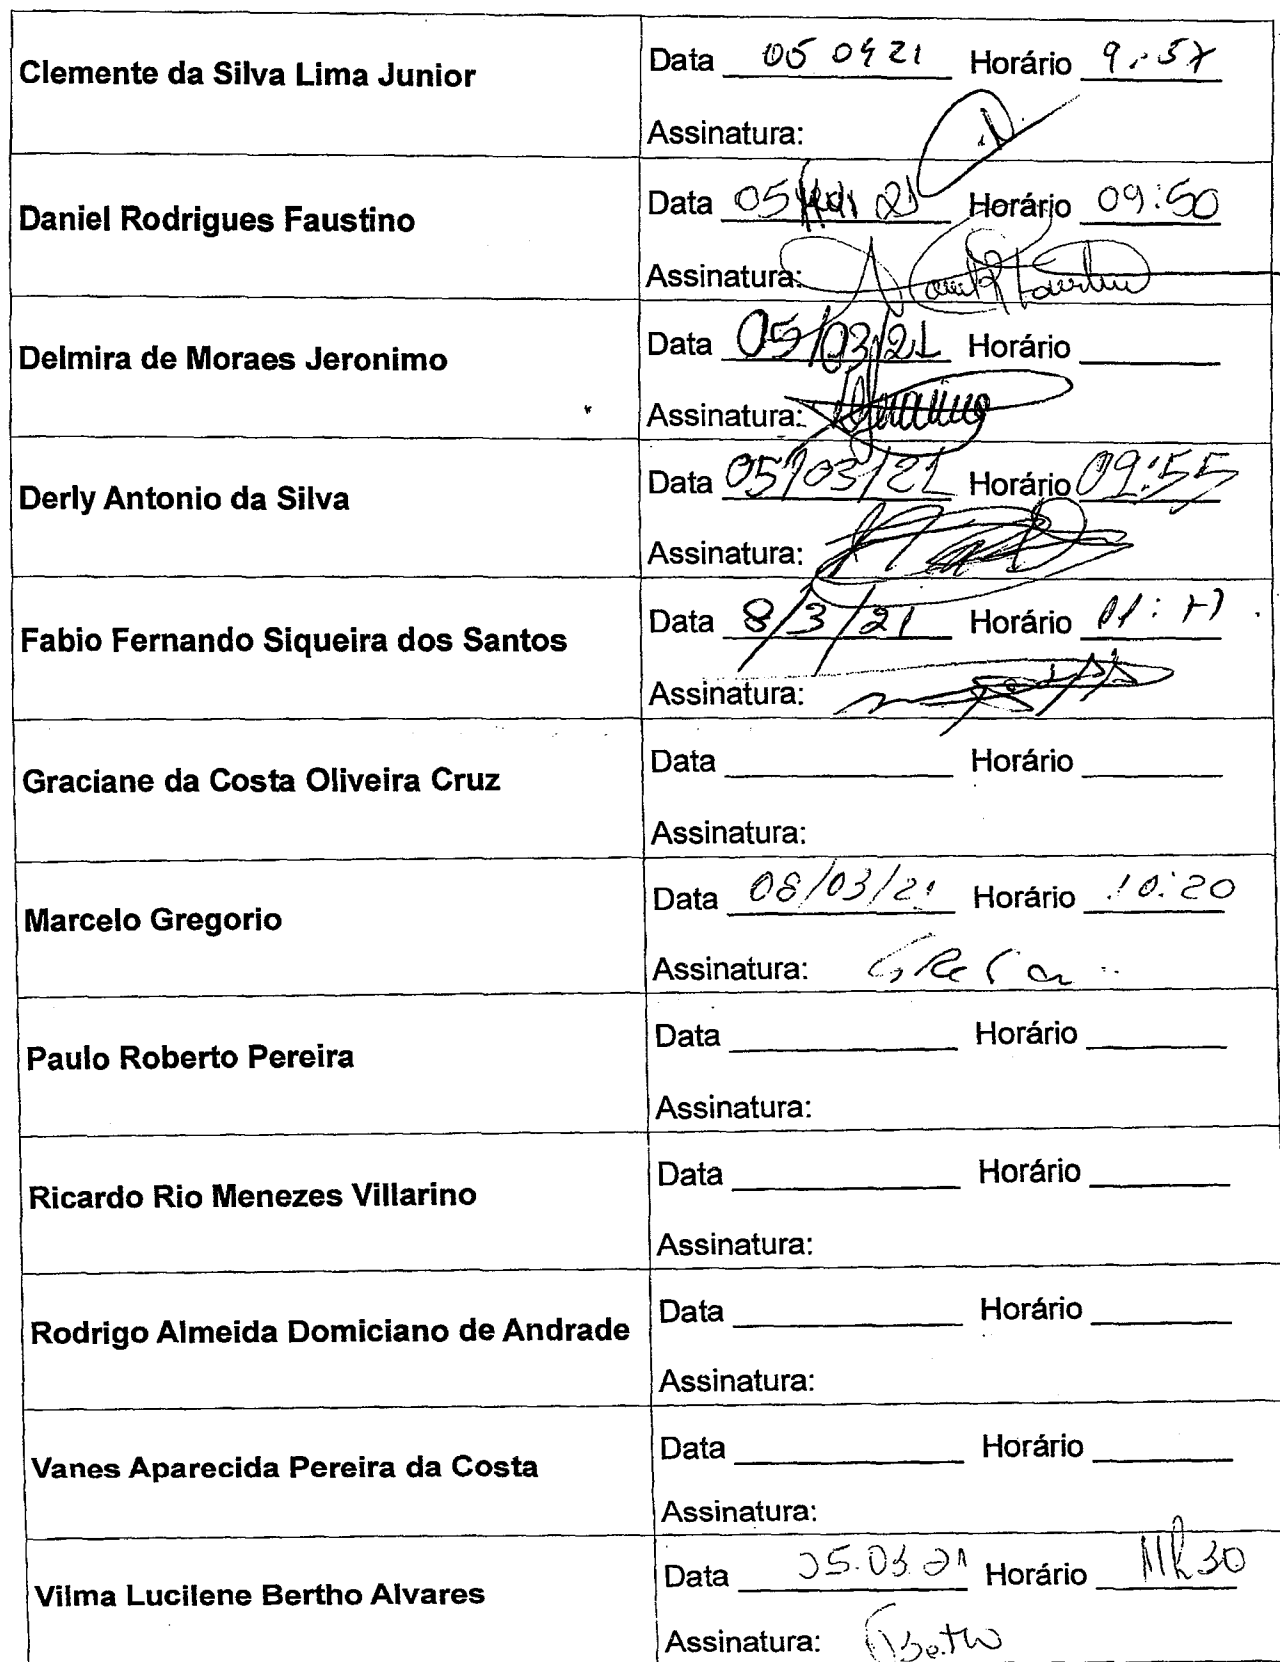 Clemente da Silva Lima Junior
Data 05 04 21 Horário 9:57
Assinatura:
Daniel Rodrigues Faustino
Data 05 21 Horário 09:50
Assinatura:
Delmira de Moraes Jeronimo
Data 05/03/21 Horário
Assinatura:
Derly Antonio da Silva
Data 05/03/21 Horário 09:55
Assinatura:
Fabio Fernando Siqueira dos Santos
Data 8/3/21 Horário
Assinatura:
Graciane da Costa Oliveira Cruz
Data Horário
Assinatura:
Marcelo Gregorio
Data 08/03/21 Horário 10:20
Assinatura:
Paulo Roberto Pereira
Data Horário
Assinatura:
Ricardo Rio Menezes Villarino
Data Horário
Assinatura:
Rodrigo Almeida Domiciano de Andrade
Data Horário
Assinatura:
Vanes Aparecida Pereira da Costa
Data Horário
Assinatura:
Vilma Lucilene Bertho Alvares
Data 05.03.21 Horário 11h30
Assinatura: Bertho